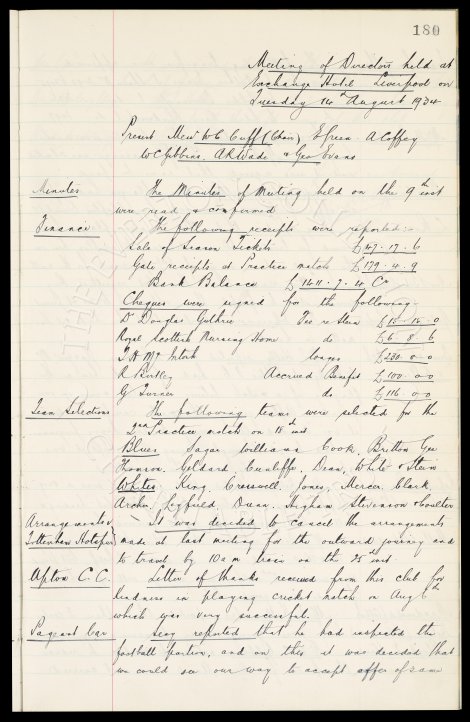 180
Meeting of Directors held at
Exchange Hotel Liverpool on
Tuesday 14th August 1934
Present Messrs W C Cuff (Chair), E Green. A Coffey
W C Gibbins. A H Wade & Geo Evans
Minutes The Minutes of Meeting held on the 9th inst
were read & confirmed
Finance The following receipts were reported:-
Sale of Season Tickets £47. 17. 6
Gate receipts at Practice match £179. 4. 9
Bank Balance £1411. 7. 4 Cr
Cheques were signed for the following-
Dr Douglas Guthrie Fee re Stein £15. 15. 0
Royal Scottish Nursing Home do £6 8 6
T H McIntosh wages £230 0 0
R Birtley Accrued Benefit £100. 0 0
G Turner do £116. 0 0
Team Selections The following teams were selected for the
2nd Practice match on 18th inst
Blues. Sagar. Williams Cook. Britton Gee
Thomson, Geldard. Cunliffe. Dean, White & Stein
Whites. King. Cresswell. Jones, Mercer. Clark.
Archer. Leyfield, Dunn. Higham Stevenson & Coulter
Arrangements It was decided to cancel the arrangements
Tottenham Hotspur made at last meeting for the outward journey and
to travel by 10 am train on the 25th inst
Upton C.C. Letter of thanks received from this club for
kindness in playing cricket match on Aug 6th
which was very successful.
Pageant Car Secy reported that he had inspected the
football portion, and on this it was decided that
we could see our way to accept offer of same